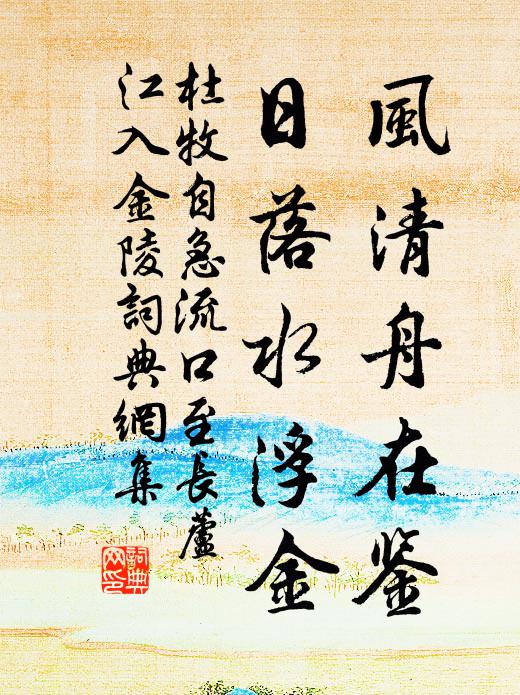 風清舟在鑒
日落水浮金
杜牧自急流口至長蘆
江入金陵詞典網集
詞典
网印